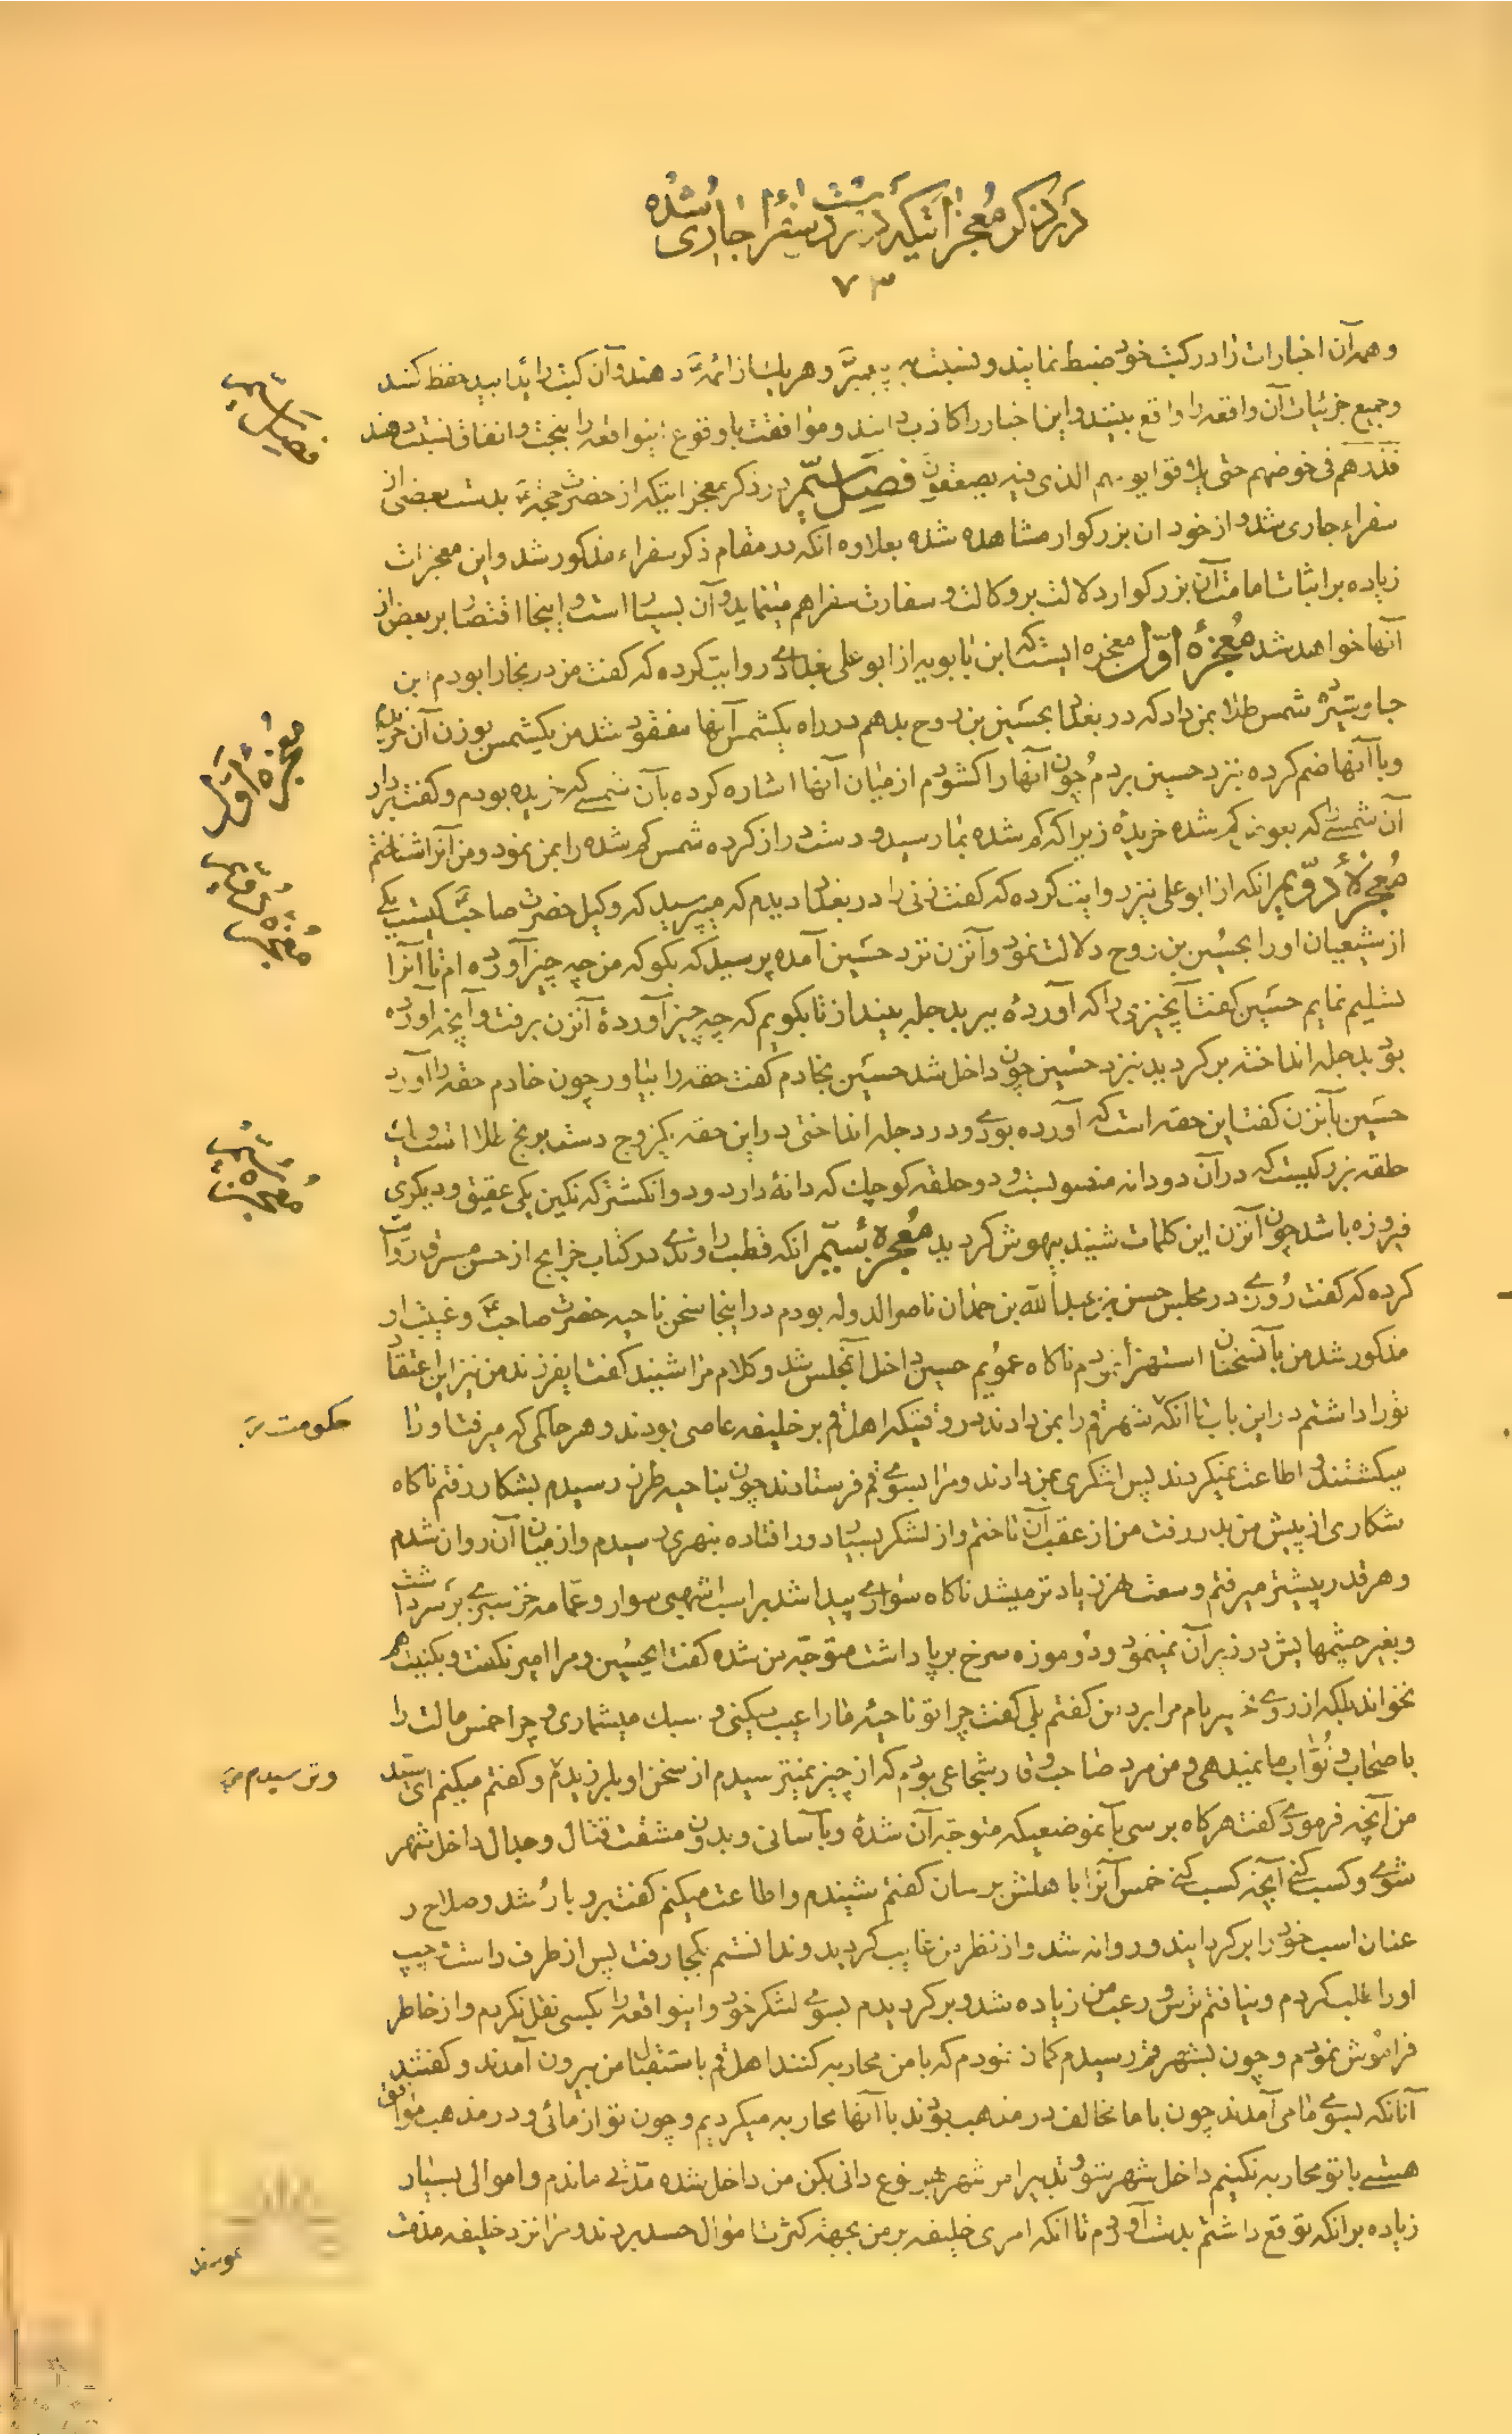 در ذکر معجزاتیکه در بردست سفراء جاری شده
۷۳
و همه آن اخبارات را در کتب خود ضبط نمایند و نسبت به پیمبر و هر یک از ائمه دهند و آن کتب را یداً بید حفظ کنند
و جمیع جزئیات آن واقعه را واقع بینند و این اخبار را کاذب دانند و موافقت با وقوع اینواقعه را ببخت و اتفاق نسبت دهند
فذرهم فی خوضهم حتی یلاقوا یومهم الذی فیه یصعقون فصل سیّم در ذکر معجزاتیکه از حضرت حجة بدست بعضی از
سفراء جاری شد و از خود ان بزرگوار مشاهده شده بعلاوه انکه در مقام ذکر سفراء مذکور شد و این معجزات
زیاده بر اثبات امامت آن بزرگوار دلالت بر وکالت و سفارت سفرا هم مینماید و آن بسیار است و اینجا اقتصار بر بعض از
آنها خواهد شد معجزه اوّل معجزه ایست که ابن بابویه از ابو علی بغدادی روایت کرده که گفت من در بخارا بودم ابن
جاوشیر ده شمس طلا بمن داد که در بغداد بحسین بن روح بدهم در راه یکشمس آنها مفقود شد من یکشمس بوزن آن خریده
و با آنها ضم کرده نزد حسین بردم چون آنها را گشودم از میان آنها اشاره کرده بآن شمسی که خریده بودم و گفت بردار
آن شمسی را که بعوض گم شده خریدۀ زیرا که گم شده بما رسید و دست دراز کرده شمس گم شده را بمن نمود و من آنرا شناختم
معجزۀ دوّیم انکه از ابو علی نیز روایت کرده که گفت زنی را در بغداد دیدم که میپرسید که وکیل حضرت صاحب کیست یکی
از شیعیان او را بحسین بن روح دلالت نمود و آنزن نزد حسین آمده پرسید که بگو که من چه چیز آورده ام تا آنرا
تسلیم نمایم حسین گفت آنچیزی را که آوردۀ ببر بدجله بینداز تا بگویم که چه چیز آوردۀ آنزن برفت و آنچه آورده
بود بدجله انداخته برگردید نزد حسین چون داخل شد حسین بخادم گفت حقه را بیاور چون خادم حقه را آورد
حسین بآنزن گفت این حقه است که آورده بودی و در دجله انداختی در این حقه یکزوج دست برنج طلا است و یک
حلقه بزرگیست که در آن دودانه منصوبست و دو حلقه کوچک که دانۀ دارد و دو انگشتر که نگین یکی عقیق و دیگری
فیروزه باشد چون آنزن این کلمات شنید بیهوش گردید معجزه سیّم انکه قطب راوندی در کتاب خرایج از حسن مسترق روایت
کرده که گفت روزی در مجلس حسن بن عبدالله بن حمدان ناصرالدوله بودم در اینجا سخن ناحیه حضرت صاحب و غیبت او
مذکور شد من بآنسخنان استهزأ نمودم ناگاه عمویم حسین داخل آنمجلس شد و کلام مرا شنید گفت ایفرزند من نیز این اعتقاد
تورا داشتم در این باب تا آنکه شهر قم را بمن دادند در وقتیکه اهل قم بر خلیفه عاصی بودند و هر حاکمی که میرفت او را
میکشتند و اطاعت نمیکردند پس لشکری بمن دادند و مرا بسوی قم فرستادند چون بناحیه طرز رسیدم بشکار رفتم ناگاه
شکاری از پیش من بدر رفت من از عقب آن تاختم و از لشکر بسیار دور افتاده بنهری رسیدم و از میان آن روان شدم
و هر قدر بیشتر میرفتم وسعت نهر زیادتر میشد ناگاه سواری پیدا شد بر اسب اشهبی سوار و عمّامه خز سبزی بر سر داشت
و بغیر چشمهایش در زیر آن نمینمود و دو موزه سرخ برپا داشت متوجّه من شده گفت ایحسین و مرا امیر نگفت و بکنیت هم
نخواند بلکه از روی تحقیر نام مرا برد من گفتم بلی گفت چرا تو ناحیۀ ما را عیب میکنی و سبک میشماری و چرا خمس مالت را
باصحاب و نوّاب ما نمیدهی و من مرد صاحب وقار و شجاعی بودم که از چیزی نمیترسیدم از سخن او بلرزیدم و گفتم میکنم ای سیّد
من آنچه فرمودی گفت هرگاه برسی بآنموضعیکه متوجّه آن شدۀ و بآسانی و بدون مشقت قتال و جدال داخل شهر
شوی و کسب کنی آنچه کسب کنی خمس آنرا باهلش برسان گفتم شنیدم و اطاعت میکنم گفت برو با رشد و صلاح و
عنان اسب خود را برگردانیده و روانه شد و از نظر من غایب گردید و ندانستم بکجا رفت پس از طرف راست و چپ
او را طلب کردم و نیافتم ترس و رعب من زیاده شد و برگردیدم بسوی لشکر خود و اینواقعه را بکسی نقل نکردم و از خاطر
فراموش نمودم و چون بشهر قم رسیدم گمان نمودم که با من محاربه کنند اهل قم باستقبال من بیرون آمدند و گفتند
آنانکه بسوی ما می آمدند چون با ما مخالف در مذهب بودند با آنها محاربه میکردیم و چون تو از مائی و در مذهب موافق
هستی با تو محاربه نکنیم داخل شهر شو و تدبیر امر شهر بهر نوع دانی بکن من داخل شده مدّتی ماندم و اموالی بسیار
زیاده بر انکه توقع داشتم بدست آوردم تا انکه امری خلیفه بر من بجهة کثرت اموال حسد بردند و مرا نزد خلیفه مذمت
فصل سیّم
معجزه اوّل
معجزه دویم
معجزه سیّم
حکومت
و ترسیدم